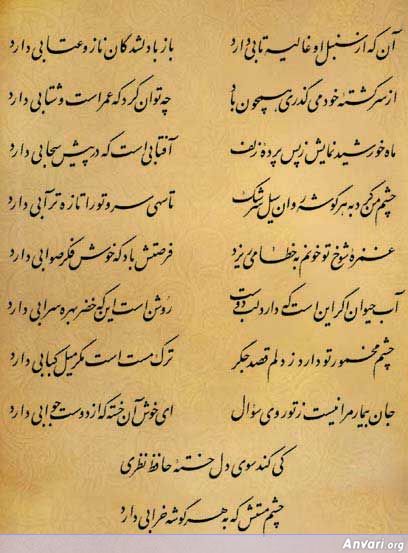 آن که از سنبل او غالیه تابی دارد    باز با دلشدگان ناز و عتابی دارد
از سر کشته خود می گذری همچون باد    چه توان کرد که عمر است و شتابی دارد
ماه خورشید نمایش ز پس پرده زلف    آفتابیست که در پیش سحابی دارد
چشم من کرد به هر گوشه روان سیل سرشک    تا سهی سرو تو را تازه تر آبی دارد
غمزه شوخ تو خونم به خطا می ریزد    فرصتش باد که خوش فکر صوابی دارد
آب حیوان اگر این است که دارد لب دوست    روشن است این که خضر بهره سرابی دارد
چشم مخمور تو دارد ز دلم قصد جگر    ترک مست است مگر میل کبابی دارد
جان بیمار مرا نیست ز تو روی سؤال    ای خوش آن خسته که از دوست جوابی دارد
کی کند سوی دل خسته حافظ نظری
چشم مستش که به هر گوشه خرابی دارد
Anvari.org